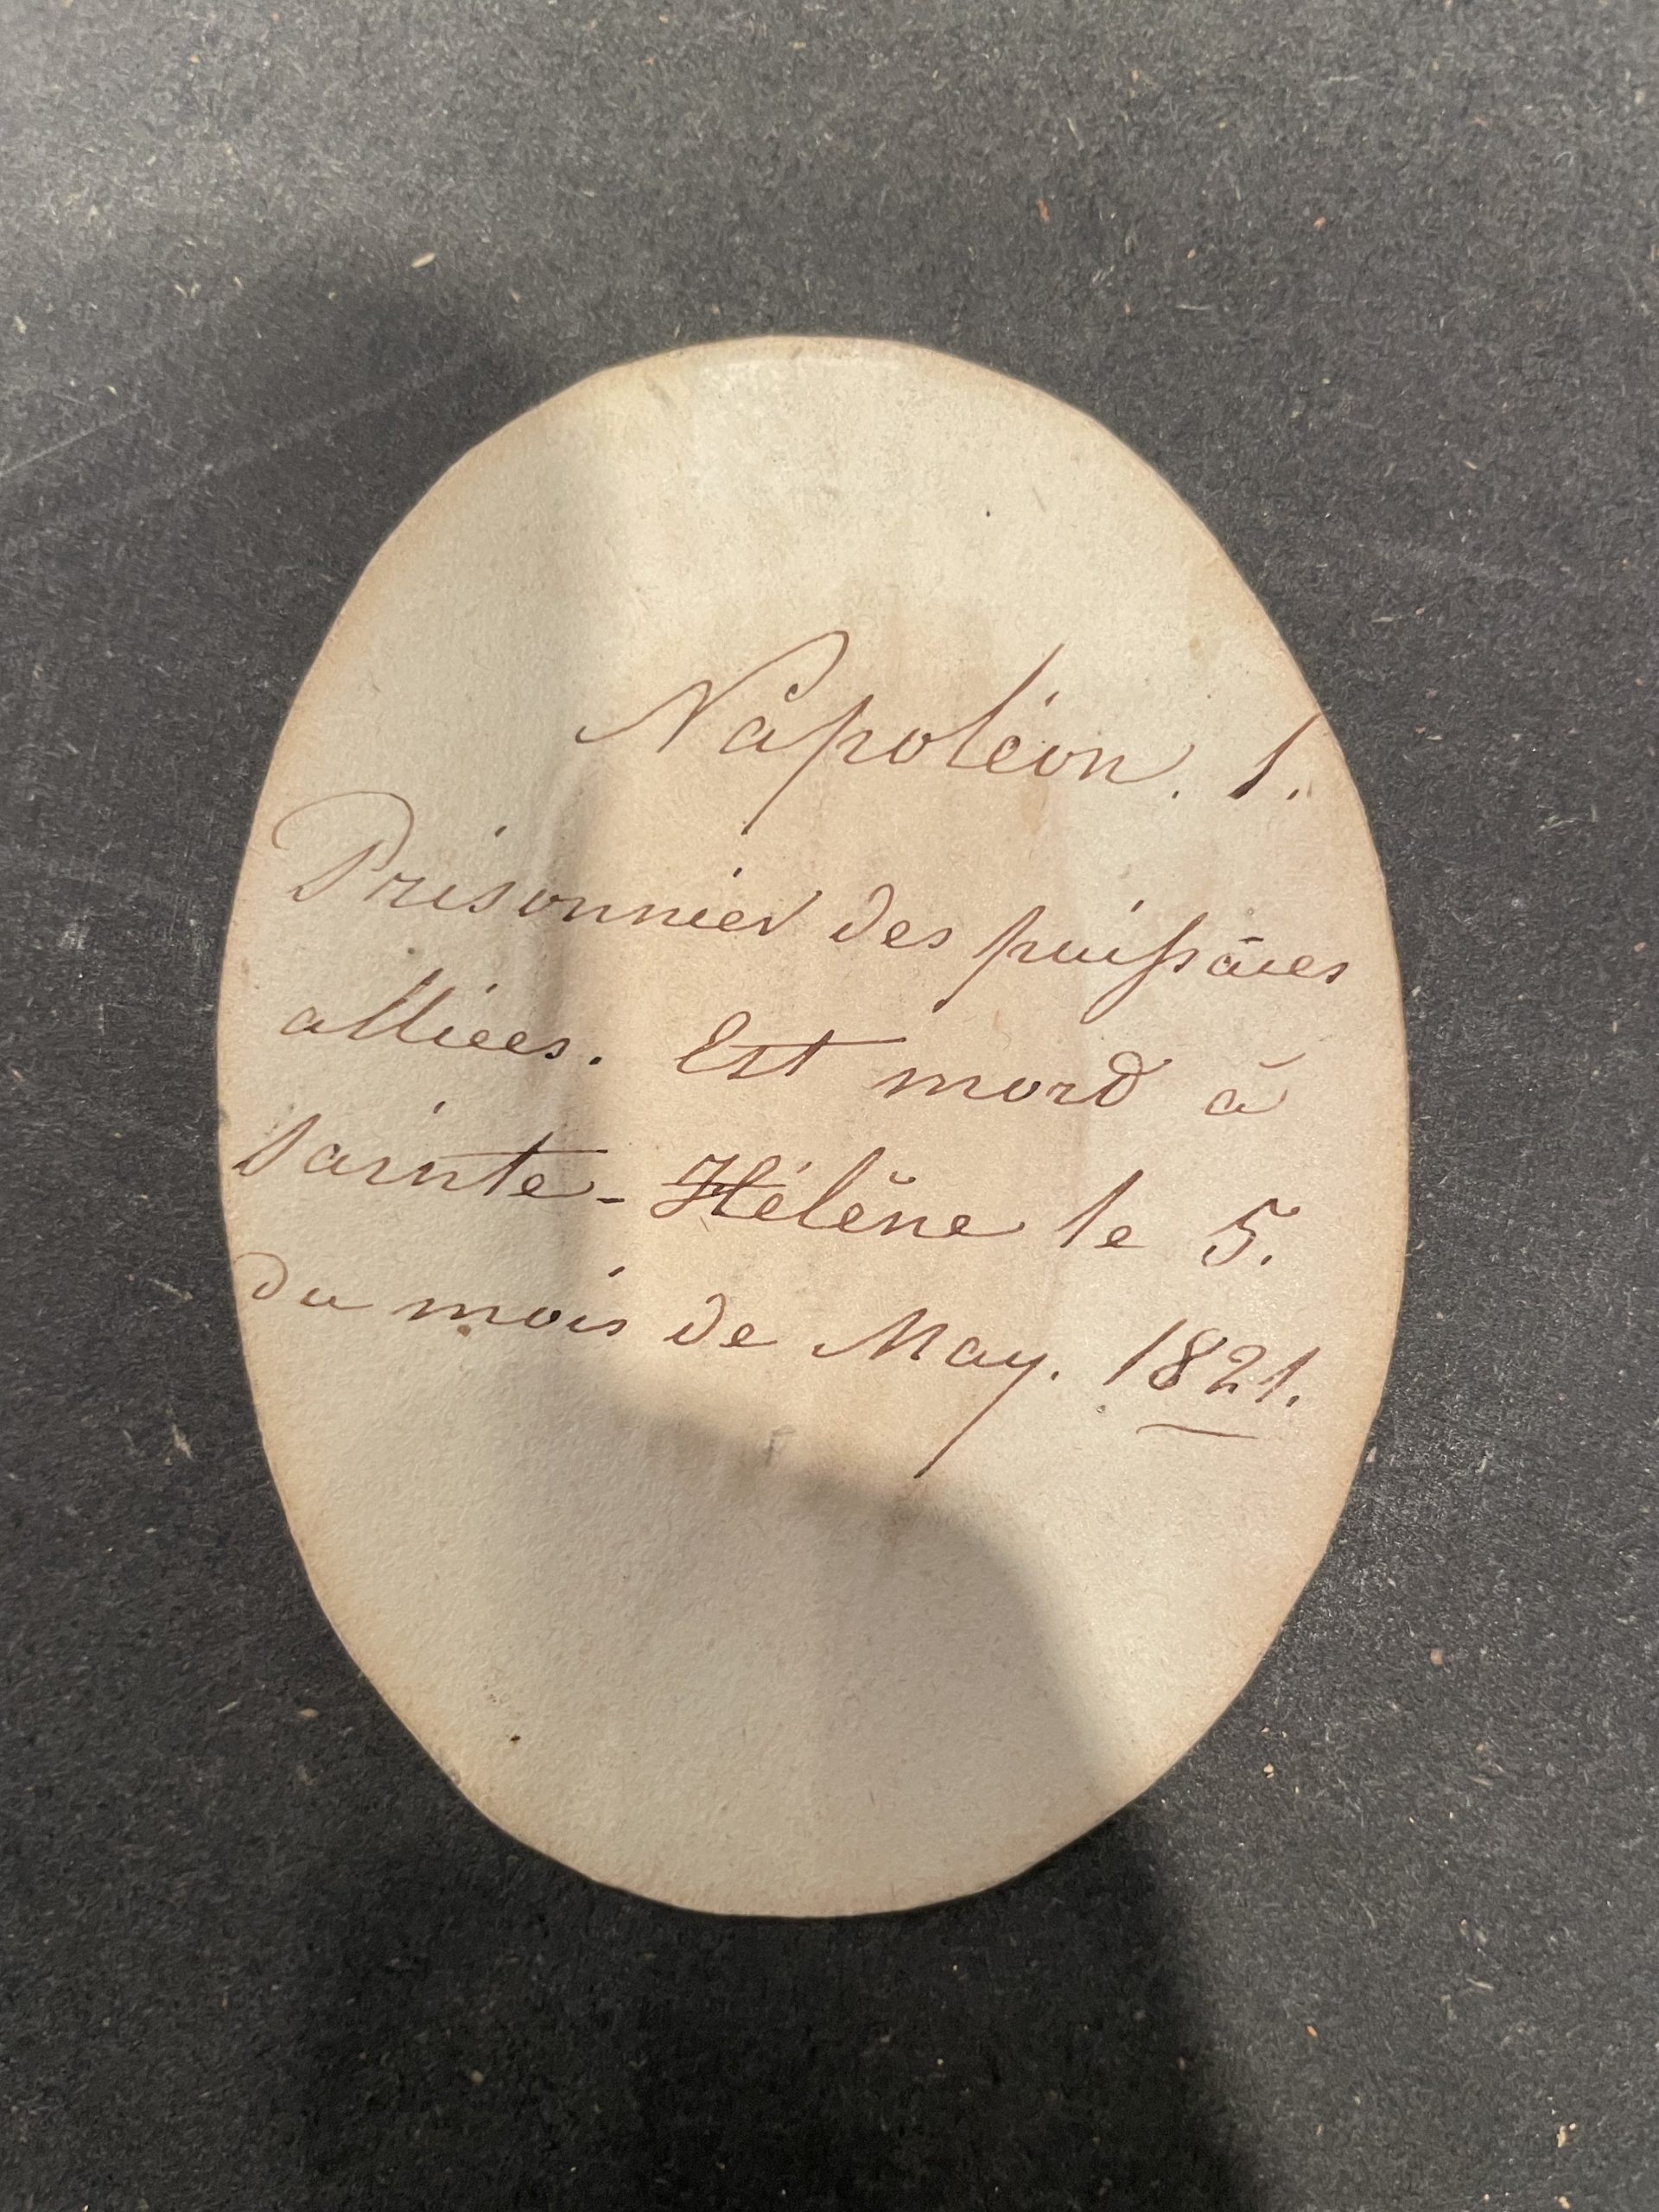 Napoléon. 1.
Prisonnier des puiſsāces
alliées. Est mord à
Sainte-Hélène le 5.
du mois de May. 1821.